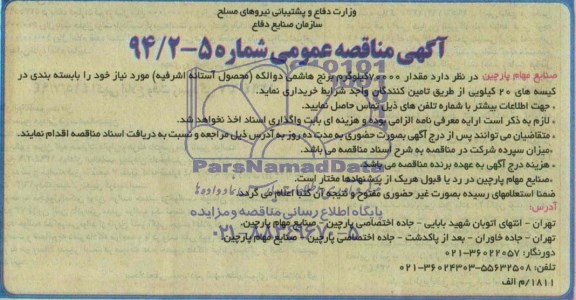 وزارت دفاع و پشتیبانی نیروهای مسلح
سازمان صنایع دفاع
آگهی مناقصه عمومی شماره ۵-۹۴/۲
صنایع مهام پارچین در نظر دارد مقدار ۷۰۰۰۰کیلوگرم برنج هاشمی دوالکه (محصول آستانه اشرفیه) مورد نیاز خود را بابسته بندی در
کیسه های ۲۰ کیلویی از طریق تامین کنندگان واجد شرایط خریداری نماید.
، جهت اطلاعات بیشتر با شماره تلفن های ذیل تماس حاصل نمایید.
، لازم به ذکر است ارایه معرفی نامه الزامی بوده و هزینه ای بابت واگذاری اسناد اخذ نخواهد شد.
، متقاضیان می توانند پس از درج آگهی بصورت حضوری به مدت ده روز به آدرس ذیل مراجعه و نسبت به دریافت اسناد مناقصه اقدام نمایند.
،میزان سپرده شرکت در مناقصه به شرح اسناد مناقصه می باشد.
، هزینه درج آگهی به عهده برنده مناقصه می باشد.
،صنایع مهام پارچین در رد یا قبول هریک از پیشنهادها مختار است.
ضمنا استعلامهای رسیده بصورت غیر حضوری مفتوح و نتیجه آن کتبا اعلام می گردد.
آدرس:
تهران - انتهای اتوبان شهید بابایی - جاده اختصاصی پارچین - صنایع مهام پارچین
تهران - جاده خاوران - بعد از پاکدشت - جاده اختصاصی پارچین - صنایع مهام پارچین
دورنگار: ۳۶۰۲۲۰۵۷-۰۲۱
تلفن: ۵۵۶۳۲۵۰۸-۳۶۰۲۴۳۰۳-۰۲۱
۱۸۱۱/م الف
ParsNamadData
پایگاه اطلاع رسانی مناقصه و مزایده
۰۲۱-۸۸۳۴۹۶۷۰-۵